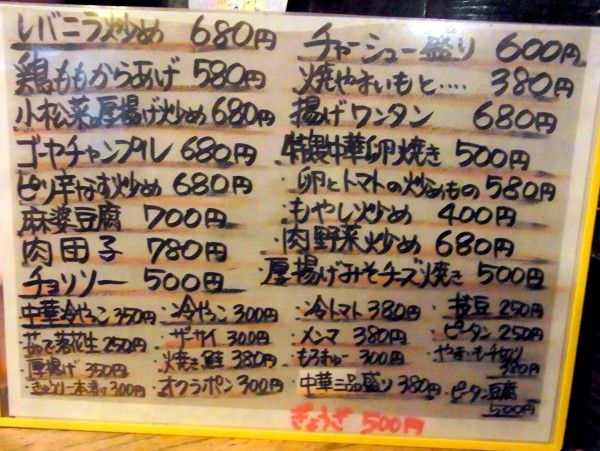 レバニラ炒め 680円
鶏ももからあげ 580円
小松菜と厚揚げ炒め 680円
ゴーヤチャンプル 680円
ピリ辛なす炒め 680円
麻婆豆腐 700円
肉団子 780円
チョリソー 500円
チャーシュー盛り 600円
焼やまいもと‥‥ 380円
揚げワンタン 680円
特製中華卵焼き 500円
・卵とトマトの炒めもの 580円
・もやし炒め 400円
・肉野菜炒め 680円
・厚揚げみそチーズ焼き 500円
中華冷やっこ 350円
・ゆで落花生 250円
・厚揚げ 350円
・きゅうり一本漬け 300円
・冷やっこ 300円
・ザーサイ 300円
・焼き鮭 380円
・オクラポン 300円
・冷トマト 380円
・メンマ 380円
・もろきゅー 300円
・中華三品盛り 380円
・枝豆 250円
・ピータン 250円
・やまいも千切り 380円
・ピータン豆腐 500円
ぎょうざ 500円